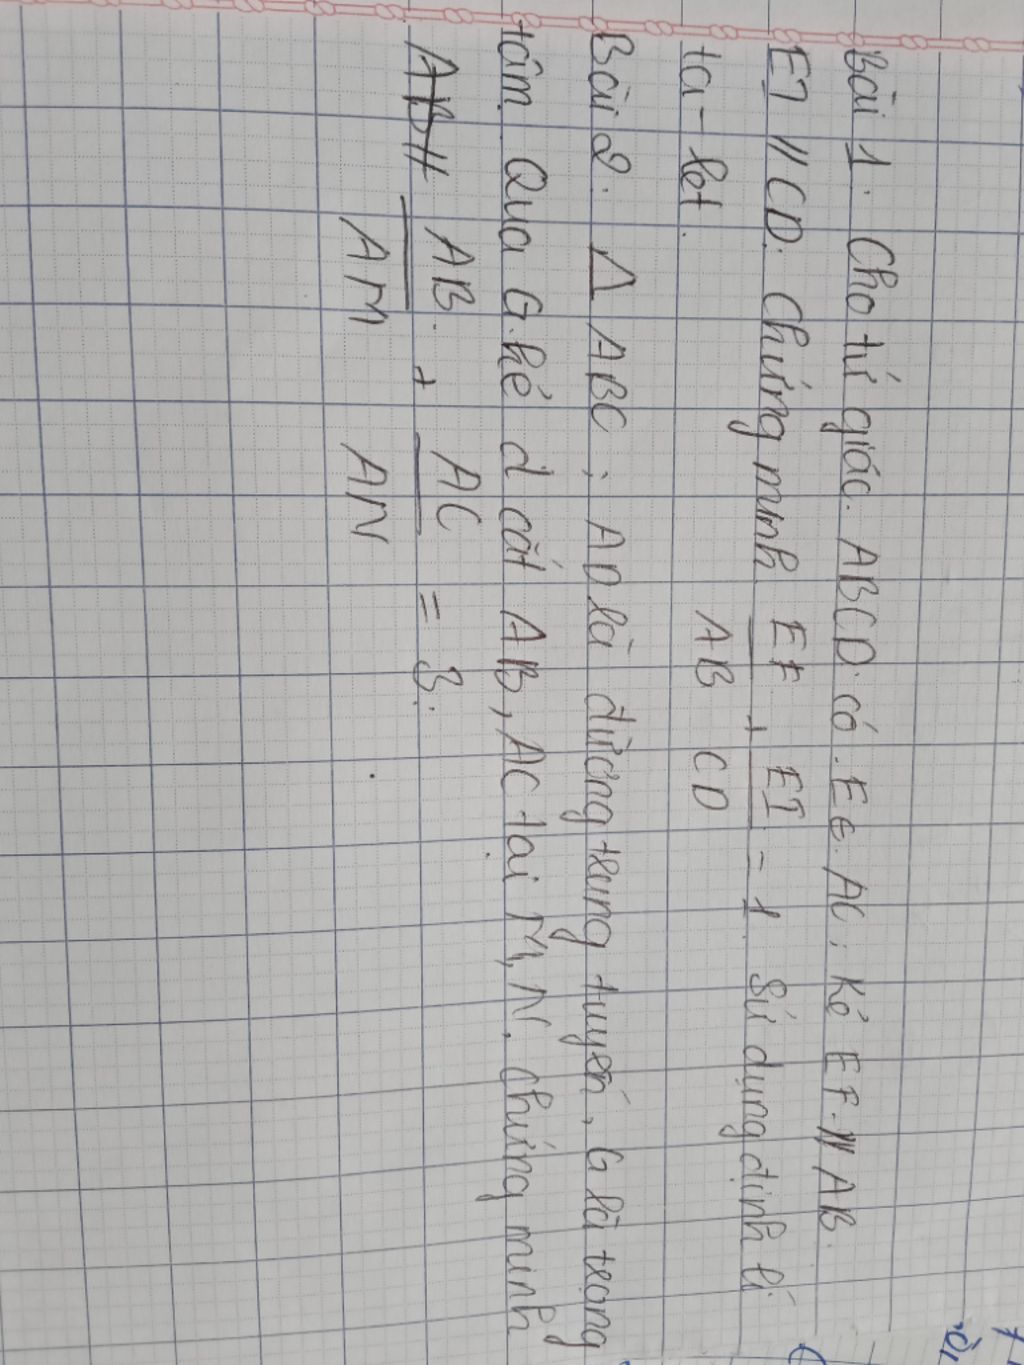 Bài 1: Cho tứ giác ABCD có E ∈ AC; Kẻ EF // AB.
EI // CD. Chứng minh EF/AB + EI/CD = 1 Sử dụng định lí
ta-let.
Bài 2: Δ ABC; AD là đường trung tuyến, G là trọng
tâm. Qua G kẻ d cắt AB, AC tại M, N. chứng minh
AB/AM + AC/AN = 3.